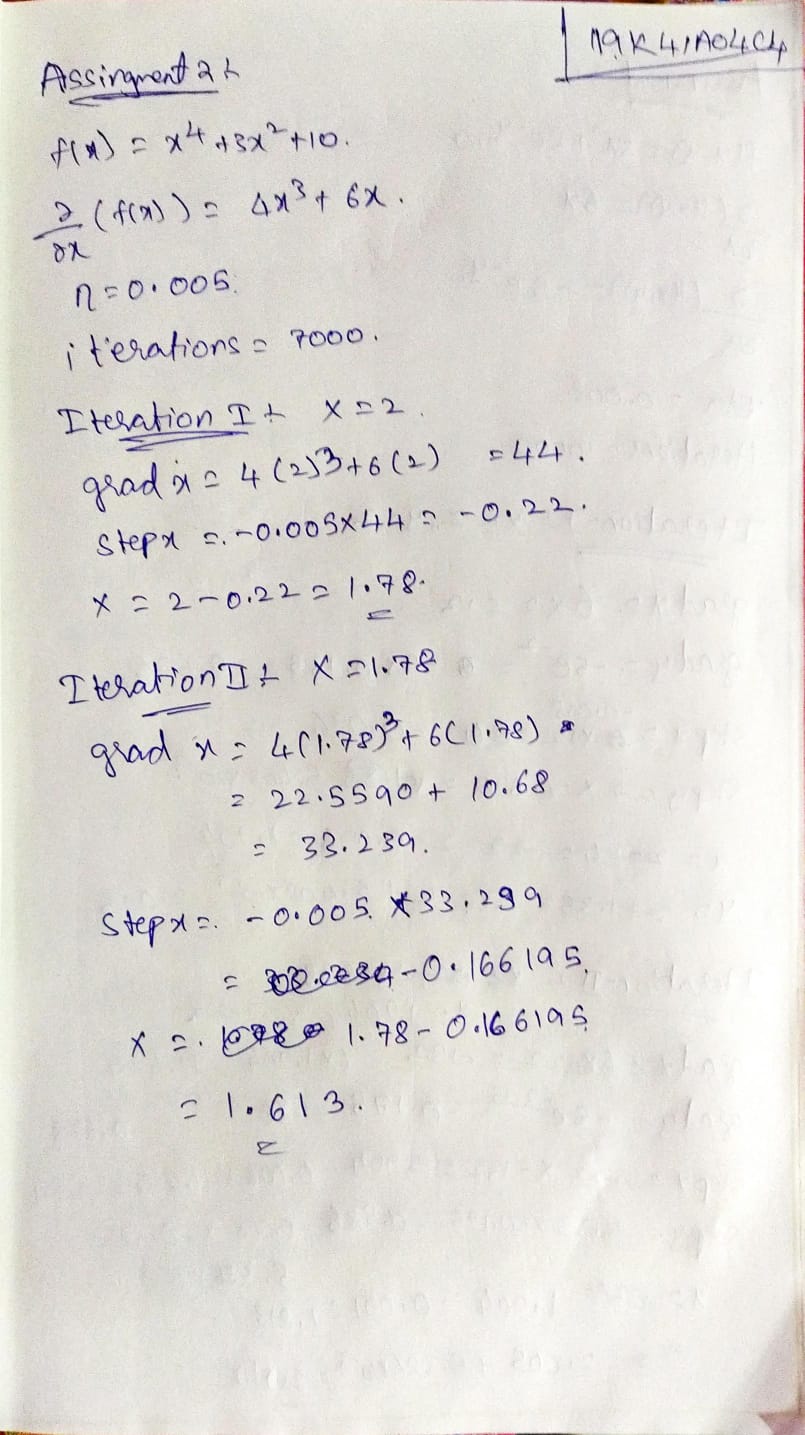 19K41A04C4
Assingment 2 :-
f(x) = x⁴ + 3x² + 10.
∂/∂x (f(x)) = 4x³ + 6x.
η = 0.005.
iterations = 7000.
Iteration I :- x = 2.
grad x = 4(2)³ + 6(2) = 44.
step x = -0.005 × 44 = -0.22.
x = 2 - 0.22 = 1.78.
Iteration II :- x = 1.78
grad x = 4(1.78)³ + 6(1.78)
= 22.5590 + 10.68
= 33.239.
step x = -0.005 * 33.239
= -0.166195.
x = 1.78 - 0.166195
= 1.613.